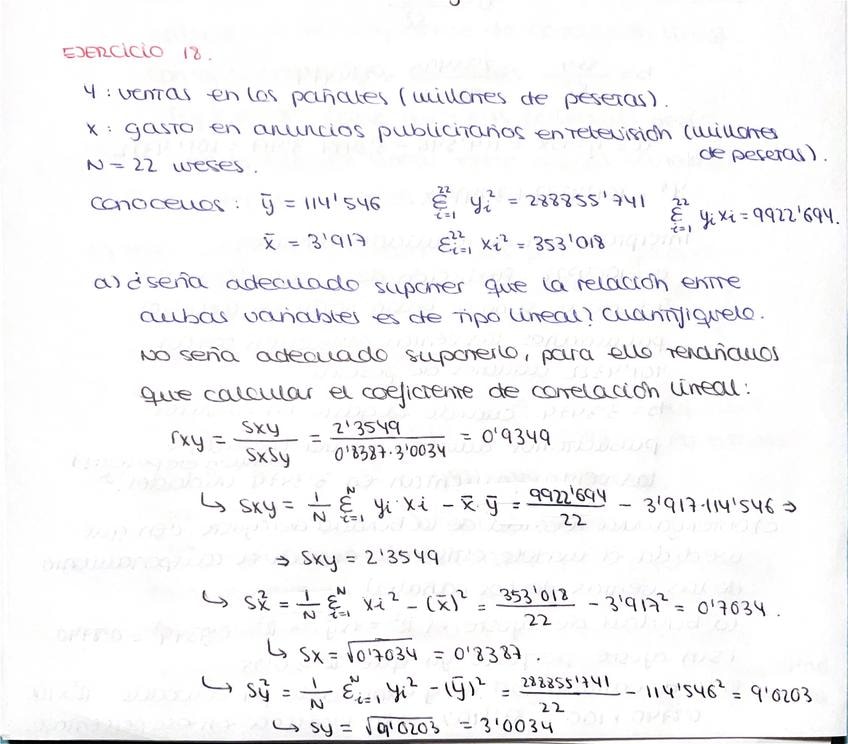 EJERCICIO 18.
Y: ventas en los pañales (millones de pesetas).
X: gasto en anuncios publicitarios en televisión (millones
de pesetas).
N = 22 meses.
Conocemos: ȳ = 114'546 Σ²²ᵢ₌₁ yᵢ² = 288855'741 Σ²²ᵢ₌₁ yᵢxᵢ = 9922'694.
x̄ = 3'917 Σ²²ᵢ₌₁ xᵢ² = 353'018
a) ¿sería adecuado suponer que la relación entre
ambas variables es de tipo lineal? Cuantifíquelo.
No sería adecuado suponerlo, para ello tendríamos
que calcular el coeficiente de correlación lineal:
rxy = Sxy / SxSy = 2'3549 / 0'8387·3'0034 = 0'9349
↳ Sxy = 1/N Σᴺᵢ₌₁ yᵢ·xᵢ - x̄·ȳ = 9922'694 / 22 - 3'917·114'546 ⇒
⇒ Sxy = 2'3549
↳ Sx² = 1/N Σᴺᵢ₌₁ xᵢ² - (x̄)² = 353'018 / 22 - 3'917² = 0'7034.
↳ Sx = √0'7034 = 0'8387.
↳ Sy² = 1/N Σᴺᵢ₌₁ yᵢ² - (ȳ)² = 288855'741 / 22 - 114'546² = 9'0203
↳ Sy = √9'0203 = 3'0034